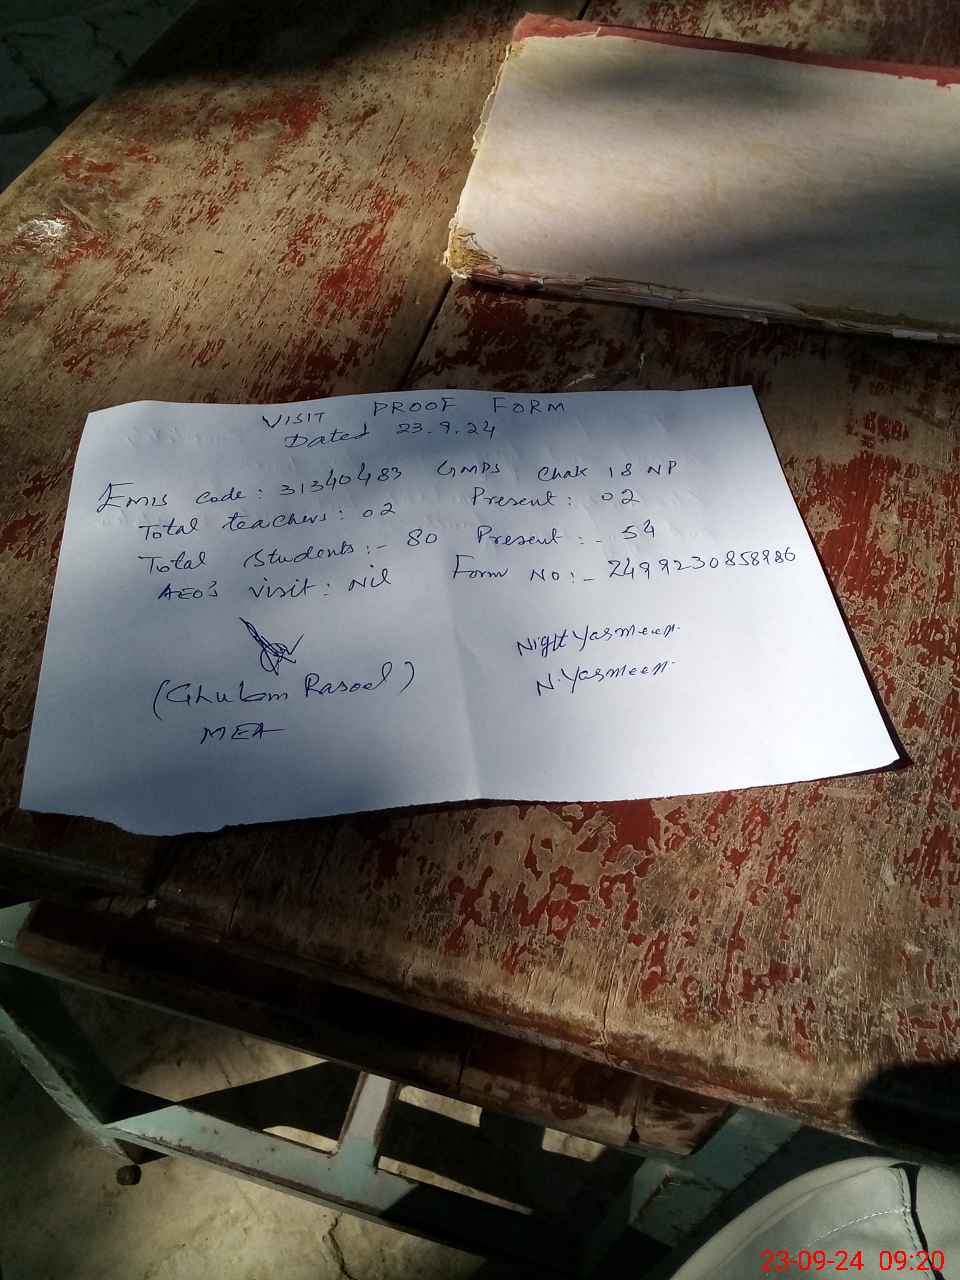 VISIT PROOF FORM
Dated 23.9.24
EMIS Code: 31340483 GMPS Chak 18 NP
Total teachers: 02 Present: 02
Total Students:- 80 Present:- 54
AEO's visit: Nil Form No:- 2499230858986
Night Yasmeen.
(Ghulam Rasool) N.Yasmeen.
MEA
23-09-24 09:20